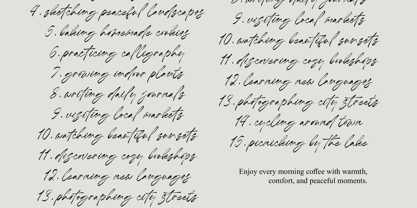 4. sketching peaceful landscapes
5. baking homemade cookies
6. practicing calligraphy
7. growing indoor plants
8. writing daily journals
9. visiting local markets
10. watching beautiful sunsets
11. discovering cozy bookshops
12. learning new languages
13. photographing city streets
8. writing daily journals
9. visiting local markets
10. watching beautiful sunsets
11. discovering cozy bookshops
12. learning new languages
13. photographing city streets
14. cycling around town
15. picnicking by the lake
Enjoy every morning coffee with warmth,
comfort, and peaceful moments.